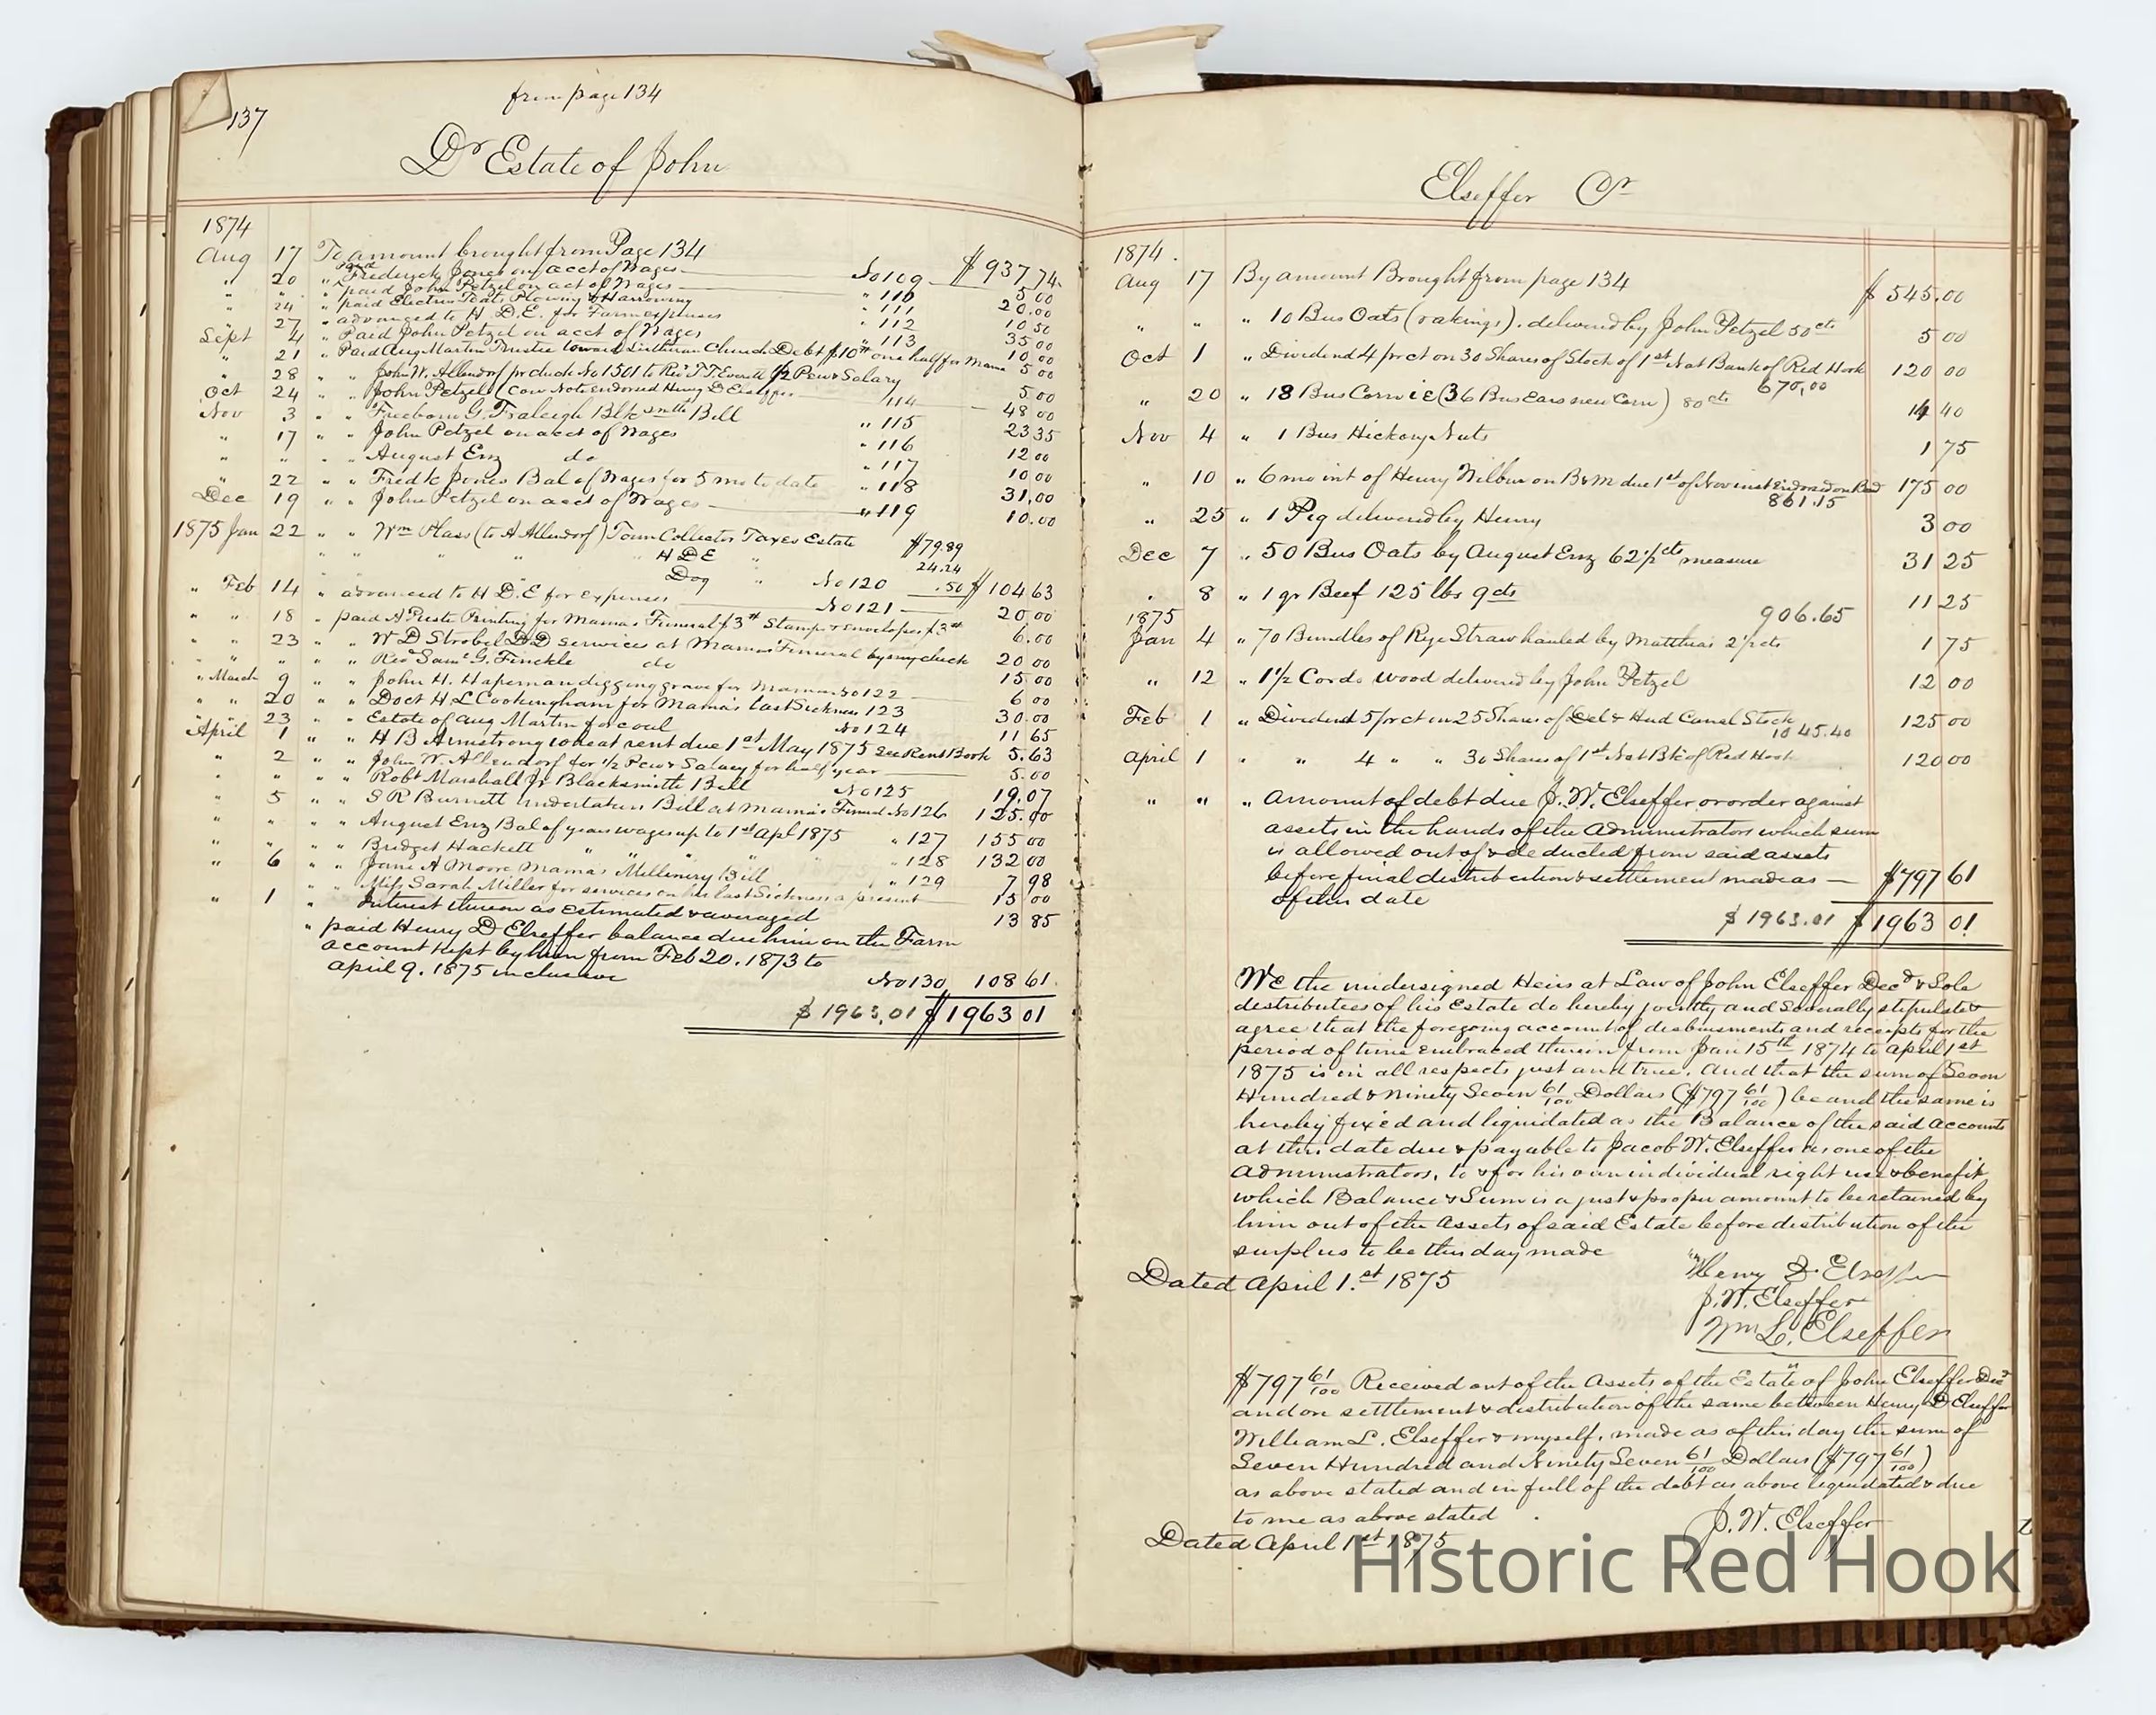 137
from page 134
Dr Estate of John
1874
Aug 17 To amount brought from Page 134 $937 74
" 20 " paid Frederick Jones on acct of Wages No 109 5 00
" " " paid John Petzel on act of Wages " 110 20.00
" 24 " paid Electus Teats Plowing & Harrowing " 111 10 50
" 27 " advanced to H. D. E. for Farm expenses " 112 35 00
Sept 4 " Paid John Petzel on acct of Wages " 113 10 00
" 21 " Paid Aug Martin Trustee toward Lutheran Church Debt $10 one half for Mama 5 00
" 28 " " John W. Allendorf pr check No 1501 to Rev J. T. Everett 1/2 Pew & Salary 5.00
Oct 24 " " John Petzel (Cow Note endorsed Henry D Elseffer 114 48 00
Nov 3 " " Freeborn G. Fraleigh Blksmith Bill " 115 23 35
" 17 " " John Petzel on acct of Wages " 116 12 00
" " " " August Enz do " 117 10 00
" 22 " " Fredk Jones Bal of Wages for 5 mo to date " 118 31,00
Dec 19 " " John Petzel on acct of Wages " 119 10.00
1875 Jan 22 " " Wm Plass (to A Allendorf) Town Collector Taxes Estate $79.89
" " " " H D E " 24.24
Dog " No 120 .50 $104 63
" Feb 14 " advanced to H. D. E for expenses No 121 20 00
" " 18 " paid A Piester Printing for Mamas Funeral $3 Stamps & envelopes $3 6.00
" " 23 " " W D Strobel D D services at Mamas Funeral by my check 20 00
" " " " " Rev Saml G. Finckle do 15 00
" March 9 " " John H. Hapeman digging grave for Mama No 122 6 00
" " 20 " " Doct H L Cookingham for Mama's last Sickness 123 30.00
" " 23 " " Estate of Aug Martin for coal No 124 11 65
April 1 " " H B Armstrong wheat rent due 1st May 1875 See Rent Book 5.63
" 2 " " John W. Allendorf for 1/2 Pew & Salary for half year 5.00
" " " " Robt Marshall Jr Blacksmith Bill No 125 19.07
" 5 " " S R Burnett undertakers Bill at Mamas Funeral No 126 125.00
" " " " August Enz Bal of years wages up to 1st Apl 1875 " 127 155 00
" " " " Bridget Hackett " " " " 128 132 00
" 6 " " Jane A Moore Mamas Millinery Bill " 129 7 98
" " Miss Sarah Miller for services on her last Sickness a present 15 00
" 1 " Interest thereon as estimated & averaged 13 85
" paid Henry D Elseffer balance due him on the Farm
account kept by him from Feb 20. 1873 to
April 9. 1875 inclusive No 130 108 61
$ 1963.01 $1963 01
Elseffer Cr
1874.
Aug 17 By amount Brought from page 134 $ 545.00
" " " 10 Bus Oats (rakings). delivered by John Petzel 50cts 5 00
Oct 1 " Dividend 4 pr ct on 30 Shares of Stock of 1st Nat Bank of Red Hook 120 00
670,00
" 20 " 18 Bus Corn i e (36 Bus Ears new Corn) 80cts 14 40
Nov 4 " 1 Bus Hickory Nuts 1 75
" 10 " 6 mo int of Henry Wilbur on B & M due 1st of Nov inst Endorsed on Bond 175 00
861.15
" 25 " 1 Pig delivered by Henry 3 00
Dec 7 " 50 Bus Oats by August Enz 62 1/2 cts measure 31 25
" 8 " 1 qr Beef 125 lbs 9 cts 11 25
1875 906.65
Jan 4 " 70 Bundles of Rye Straw hauled by Matthias 2 1/2 cts 1 75
" 12 " 1 1/2 Cords wood delivered by John Petzel 12 00
Feb 1 " Dividend 5 pr ct on 25 Shares of Del & Hud Canal Stock 125 00
1045.40
April 1 " " 4 " " 30 Shares of 1st Nat Bk of Red Hook 120 00
" " " Amount of debt due J. W. Elseffer or order against
assets in the hands of the Administrators which sum
is allowed out of & deducted from said assets
before final distribution & settlement made as — $797 61
of this date
$ 1963.01 $1963 01
We the undersigned Heirs at Law of John Elseffer Decd & Sole
distributees of his Estate do hereby jointly and severally stipulate &
agree that the foregoing account of disbursments and receipts for the
period of time embraced therein from Jan 15th 1874 to April 1st
1875 is in all respects just and true. And that the sum of Seven
Hundred & Ninety Seven 61/100 Dollars ($797 61/100) be and the same is
hereby fixed and liquidated as the Balance of the said accounts
at this date due & payable to Jacob W. Elseffer as one of the
Administrators, to & for his own individual right use & benefit
which Balance & Sum is a just & proper amount to be retained by
him out of the Assets of said Estate before distribution of the
surplus to be this day made
Dated April 1.st 1875
Henry D. Elseffer
J. W. Elseffer
Wm L. Elseffer
$797 61/100 Received out of the Assets of the Estate of John Elseffer Decd
and on settlement & distribution of the same between Henry D Elseffer
William L. Elseffer & myself, made as of this day the sum of
Seven Hundred and Ninety Seven 61/100 Dollars ($797 61/100)
as above stated and in full of the debt as above liquidated & due
to me as above stated
J. W. Elseffer
Dated April 1st 1875
Historic Red Hook